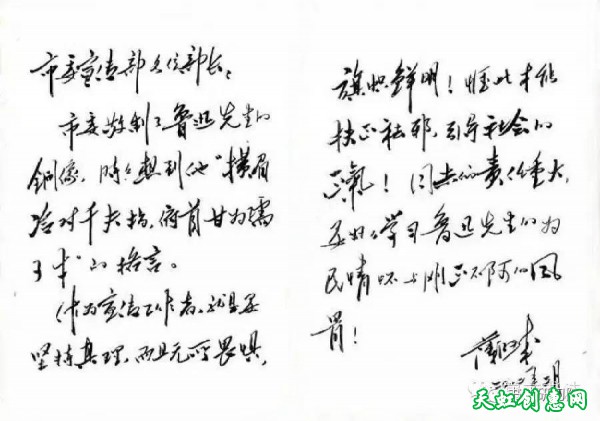 市委宣传部各位部长：
市委敬制了鲁迅先生的
铜像，时时想到他“横眉
冷对千夫指，俯首甘为孺
子牛”的格言。
作为宣传工作者，就是要
坚持真理，而且无所畏惧，
旗帜鲜明！惟此才能
扶正祛邪，引导社会的
正气！同志们责任重大，
要好好学习鲁迅先生们为
民情怀与刚正不阿的风
骨！
天虹创意网